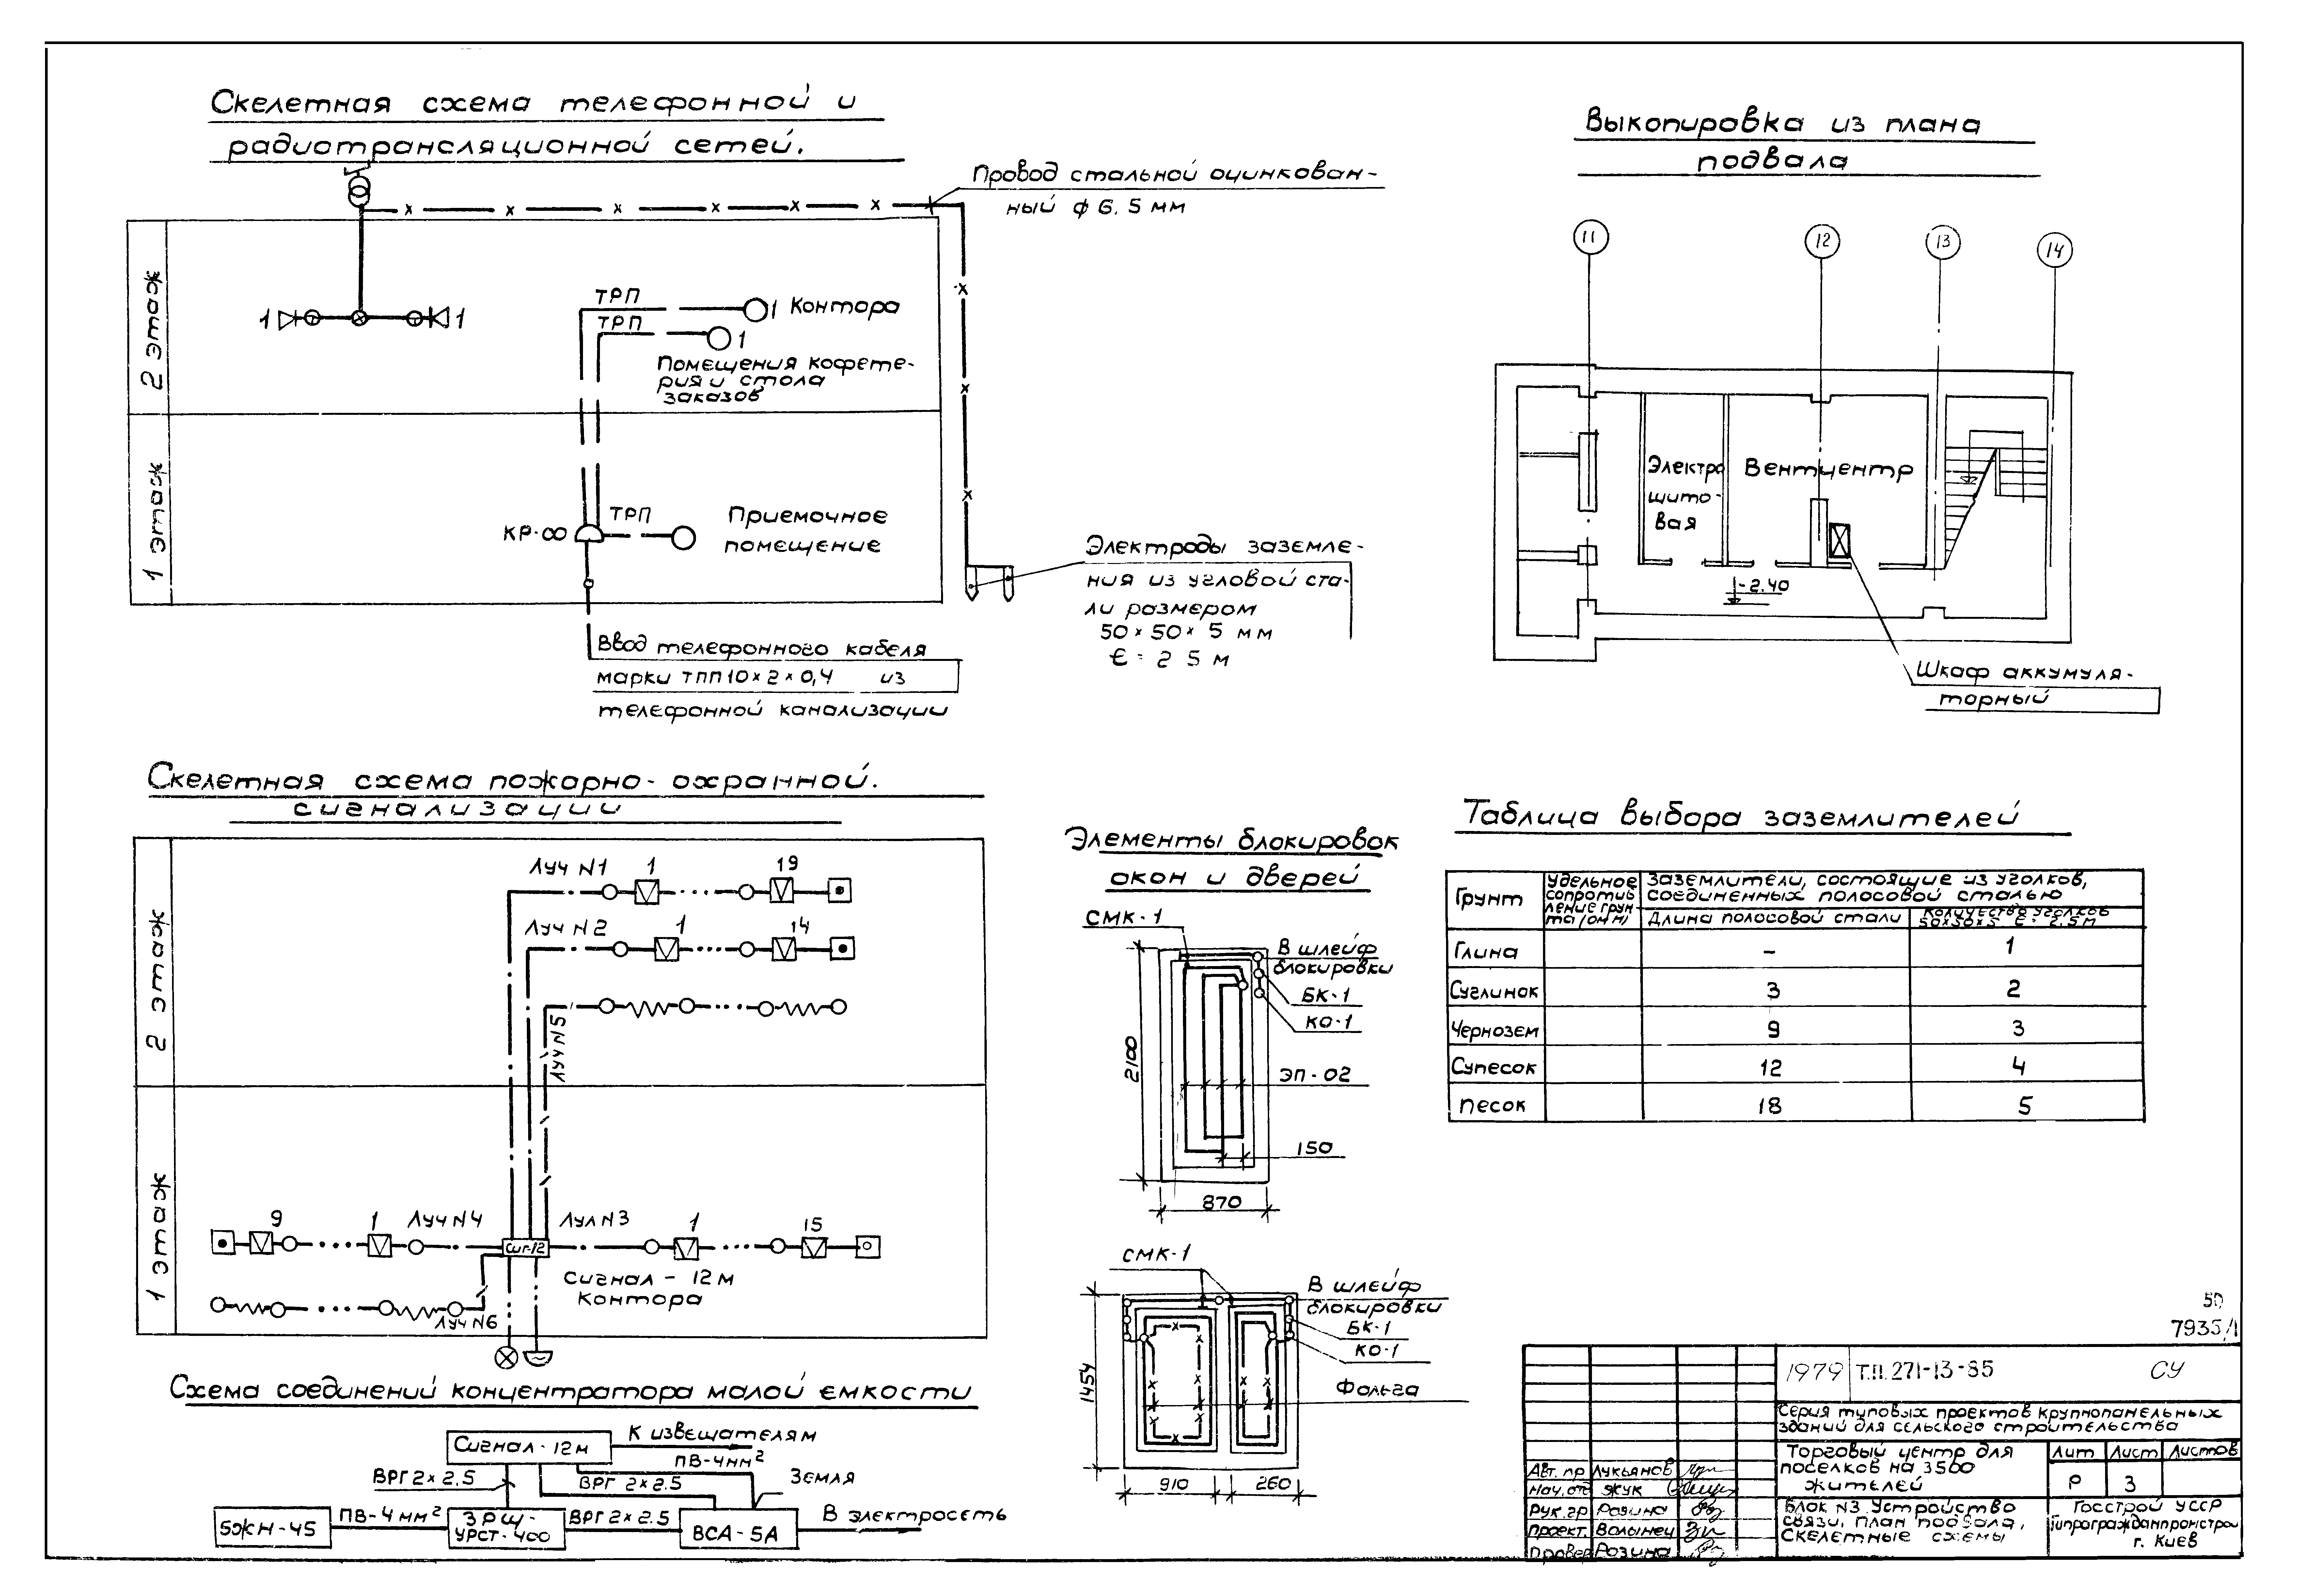 Скелетная схема телефонной и
радиотрансляционной сетей.
Провод стальной оцинкован-
ный ф 6.5 мм
2 этаж
1 этаж
1
1
ТРП
1 Контора
ТРП
1
Помещения кофете-
рия и стола
заказов
КР-∞
ТРП
Приемочное
помещение
Электроды заземле-
ния из угловой ста-
ли размером
50×50×5 мм
ℓ = 2 5 м
Ввод телефонного кабеля
марки ТПП10×2×0,4 из
телефонной канализации
Выкопировка из плана
подвала
11
12
13
14
Электро
щито-
вая
Вентцентр
-2.40
Шкаф аккумуля-
торный
Скелетная схема пожарно-охранной.
сигнализации
2 этаж
1 этаж
Луч N1
1
19
Луч N2
1
14
Луч N5
9
1
Луч N4
Сиг-12
Лул N3
1
15
Сигнал - 12м
Контора
Луч N6
Схема соединений концентратора малой емкости
Сигнал-12м
К извещателям
ПВ-4мм²
ВРГ 2×2.5
ВРГ 2×2.5
Земля
5ЖН-45
ПВ-4мм²
ЗРЩ-
УРСТ-400
ВРГ2×2.5
ВСА-5А
В электросеть
Элементы блокировок
окон и дверей
СМК-1
В шлейф
блокировки
БК-1
КО-1
ЭП-02
2100
150
870
СМК-1
В шлейф
блокировки
БК-1
КО-1
Фольга
1454
910
260
Таблица выбора заземлителей
Грунт
Удельное
сопротив
ление грун
та (ом м)
Заземлители, состоящие из уголков,
соединенных полосовой сталью
Длина полосовой стали
Количество уголков
50×50×5 ℓ = 2,5м
Глина – 1
Суглинок 3 2
Чернозем 9 3
Супесок 12 4
Песок 18 5
50
7935/1
1979 Т.П. 271-13-85 СУ
Серия типовых проектов крупнопанельных
зданий для сельского строительства
Торговый центр для
поселков на 3500
жителей
Лит Лист Листов
Р 3
Блок N3 Устройство
связи, план подвала,
Скелетные схемы
Госстрой УССР
Гипрогражданпромстрой
г. Киев
Авт. пр Лукьянов
Нач. от Жук
Рук. гр Розина
Проект. Волынец
Провер Розина